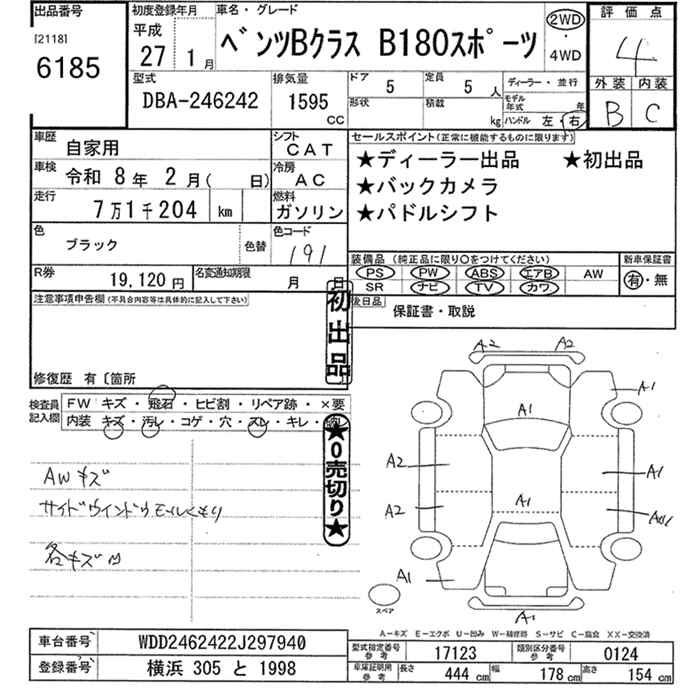 出品番号 初度登録年月 車名・グレード 2WD 評価点
[2118] 平成
6185 27年 1月 ベンツBクラス B180スポーツ ・ 4
4WD
型式 排気量 ドア 定員 ディーラー・並行 外装 内装
DBA-246242 1595 CC 5 5人 モデル年式 年 B C
形状 積載 kg ハンドル 左 右
車歴 自家用 シフト CAT セールスポイント(正常に機能するものに限ります)
車検 令和 8年 2月( 日) 冷房 AC ★ディーラー出品 ★初出品
走行 7万1千204 km 燃料 ガソリン ★バックカメラ
★パドルシフト
色 ブラック 色替 色コード 191
装備品(純正品に限り○をつけてください) 新車保証書
R券 19,120円 名変通知期限 月 日 PS PW ABS エアB AW 有・無
SR ナビ TV カワ
注意事項申告欄(不具合内容等は具体的に記入して下さい) 後日品 保証書・取説
初出品
修復歴 有〔箇所
検査員記入欄 FW キズ・飛石・ヒビ割・リペア跡・×要
内装 キズ・汚レ・コゲ・穴・スレ・キレ・
★0売切り★
AWキズ
サイドウインドウモールくもり
各キズ凹
A2 A2
A1 A1
A2 A1
A2 A1
A1 A1
スペア
A-キズ E-エクボ U-凹み W-補修跡 S-サビ C-腐食 XX-交換済
車台番号 WDD2462422J297940 型式指定番号 参考 17123 類別区分番号 参考 0124
登録番号 横浜 305 と 1998 車庫証明用 参考 長さ 444 cm 幅 178 cm 高さ 154 cm